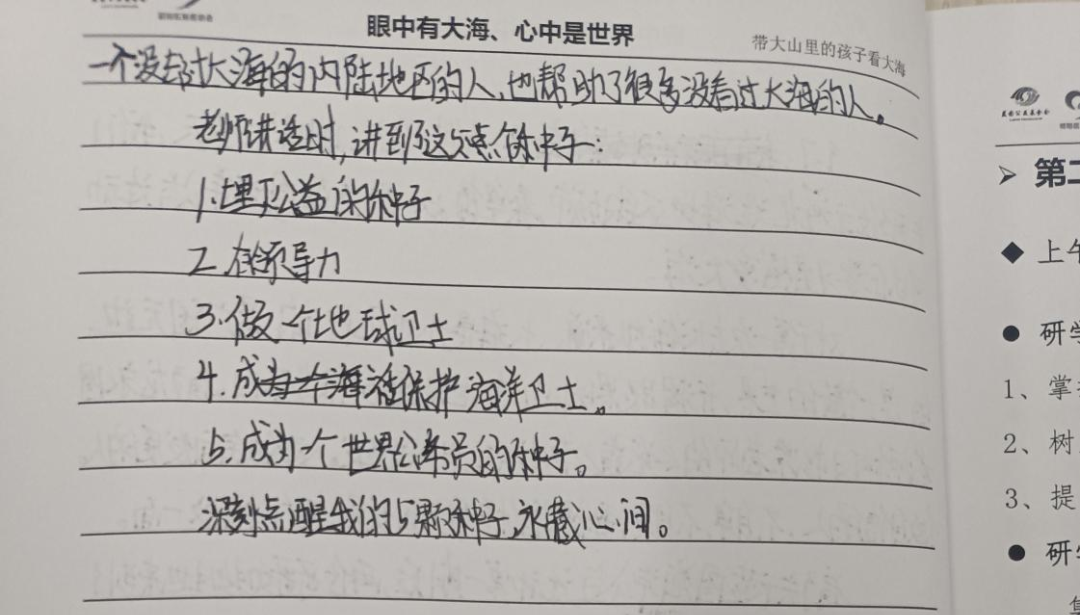 眼中有大海、心中是世界
带大山里的孩子看大海
一个没去过大海的内陆地区的人,也帮助了很多没看过大海的人。
老师讲话时,讲到了这个种子:
1.埋下公益的种子
2.有领导力
3.做一个地球卫士
4.成为一个海 保护海洋卫士。
5.成为一个世界公务员的种子。
深刻点醒我的5颗种子,永藏心间。
第二
上午
研学
1、掌
2、树
3、提
研学